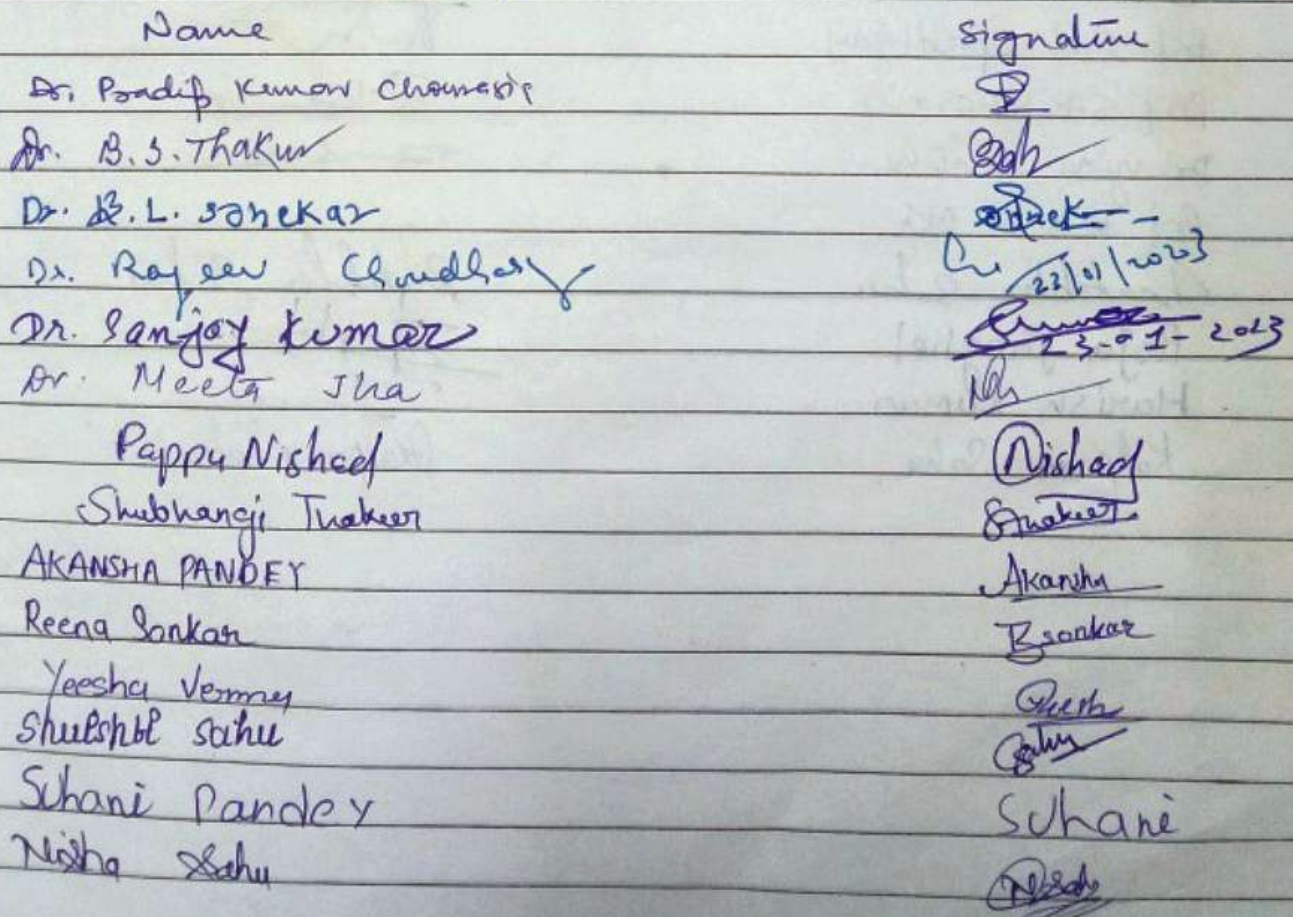 Name Signature
Dr. Pradip Kumar Chourasia
Dr. B.S. Thakur
Dr. B.L. Sonekar Sonek
Dr. Rajeev Choudhary 23/01/2023
Dr. Sanjay Kumar Kumar 23-01-2023
Dr. Meeta Jha
Pappu Nishad Nishad
Shubhangi Thakur SThakur
AKANSHA PANDEY Akansha
Reena Sonkar Rsonkar
Yeesha Verma
sahu Sahu
Suhani Pandey Suhani
Nisha Sahu